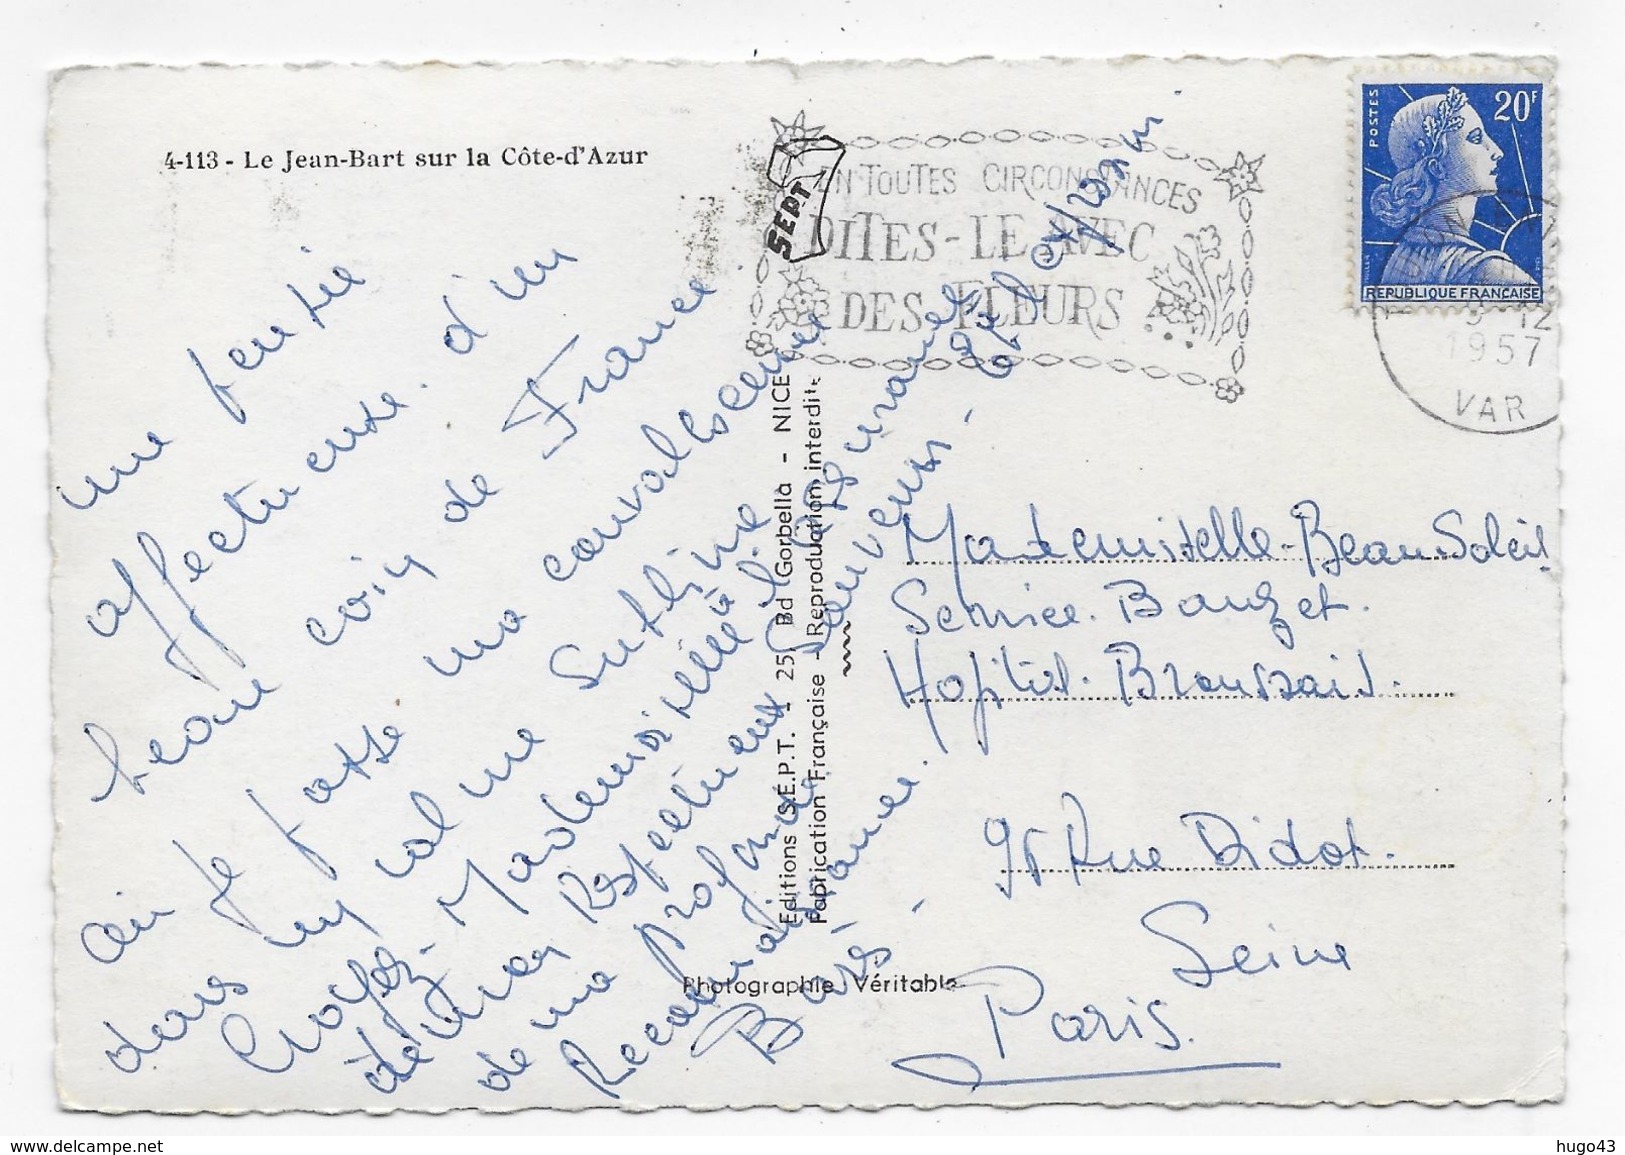 4-113 - Le Jean-Bart sur la Côte-d'Azur
EN TOUTES CIRCONSTANCES
DITES-LE AVEC
DES FLEURS
SEPT
POSTES
20F
REPUBLIQUE FRANÇAISE
12
1957
VAR
une pensée
affectueuse. d'un
beau coin de France.
ou je passe ma convalescence
dans un cal me sublime
Croyez. Mademoiselle à l'assurance
de mes Respectueux Souvenirs - et à l'expression
de ma profonde
Reconnaissance.
Editions S.E.P.T. - 25, Bd Gorbella - NICE
Fabrication Française - Reproduction interdite
Photographie Véritable
Mademoiselle-Beau-Soleil
Service. Bauzet.
Hopital. Broussais.
95 Rue Didot.
Seine
Paris.
hugo43